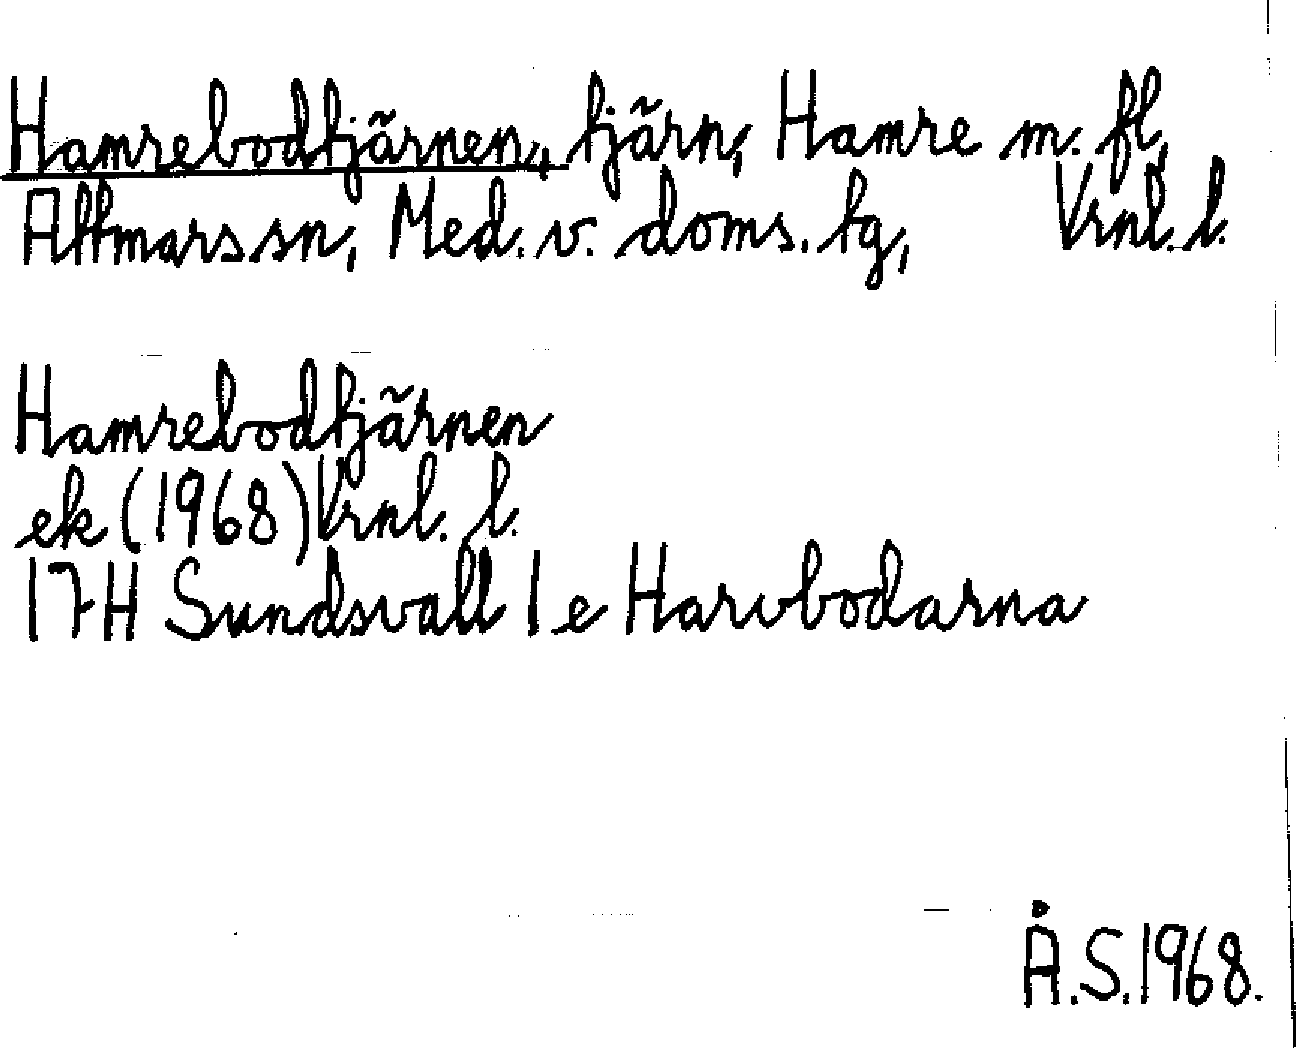 Hamrebodtjärnen, tjärn, Hamre m. fl,
Attmars sn, Med. v. doms. tg, Vrnl. l.
Hamrebodtjärnen
ek (1968) Vrnl. l.
17H Sundsvall 1 e Harvbodarna
Å.S.1968.